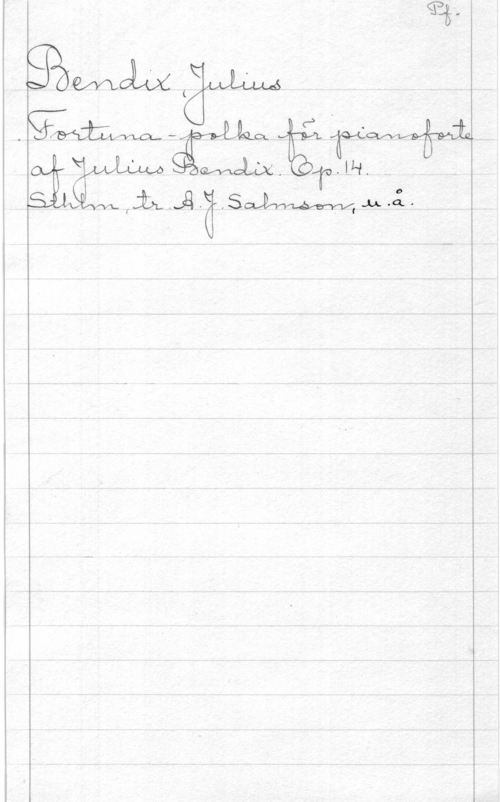 Pf.
Bendix, Julius
Fortuna-polka för pianoforte
af Julius Bendix. Op. 14.
Sthlm, tr. A. J. Salmson, u.å.